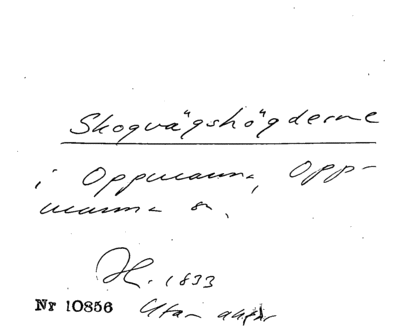 Skogvägshögderne
i Oppmanna, Opp-
manna sn.
H. 1833
Nr 10856 Utan